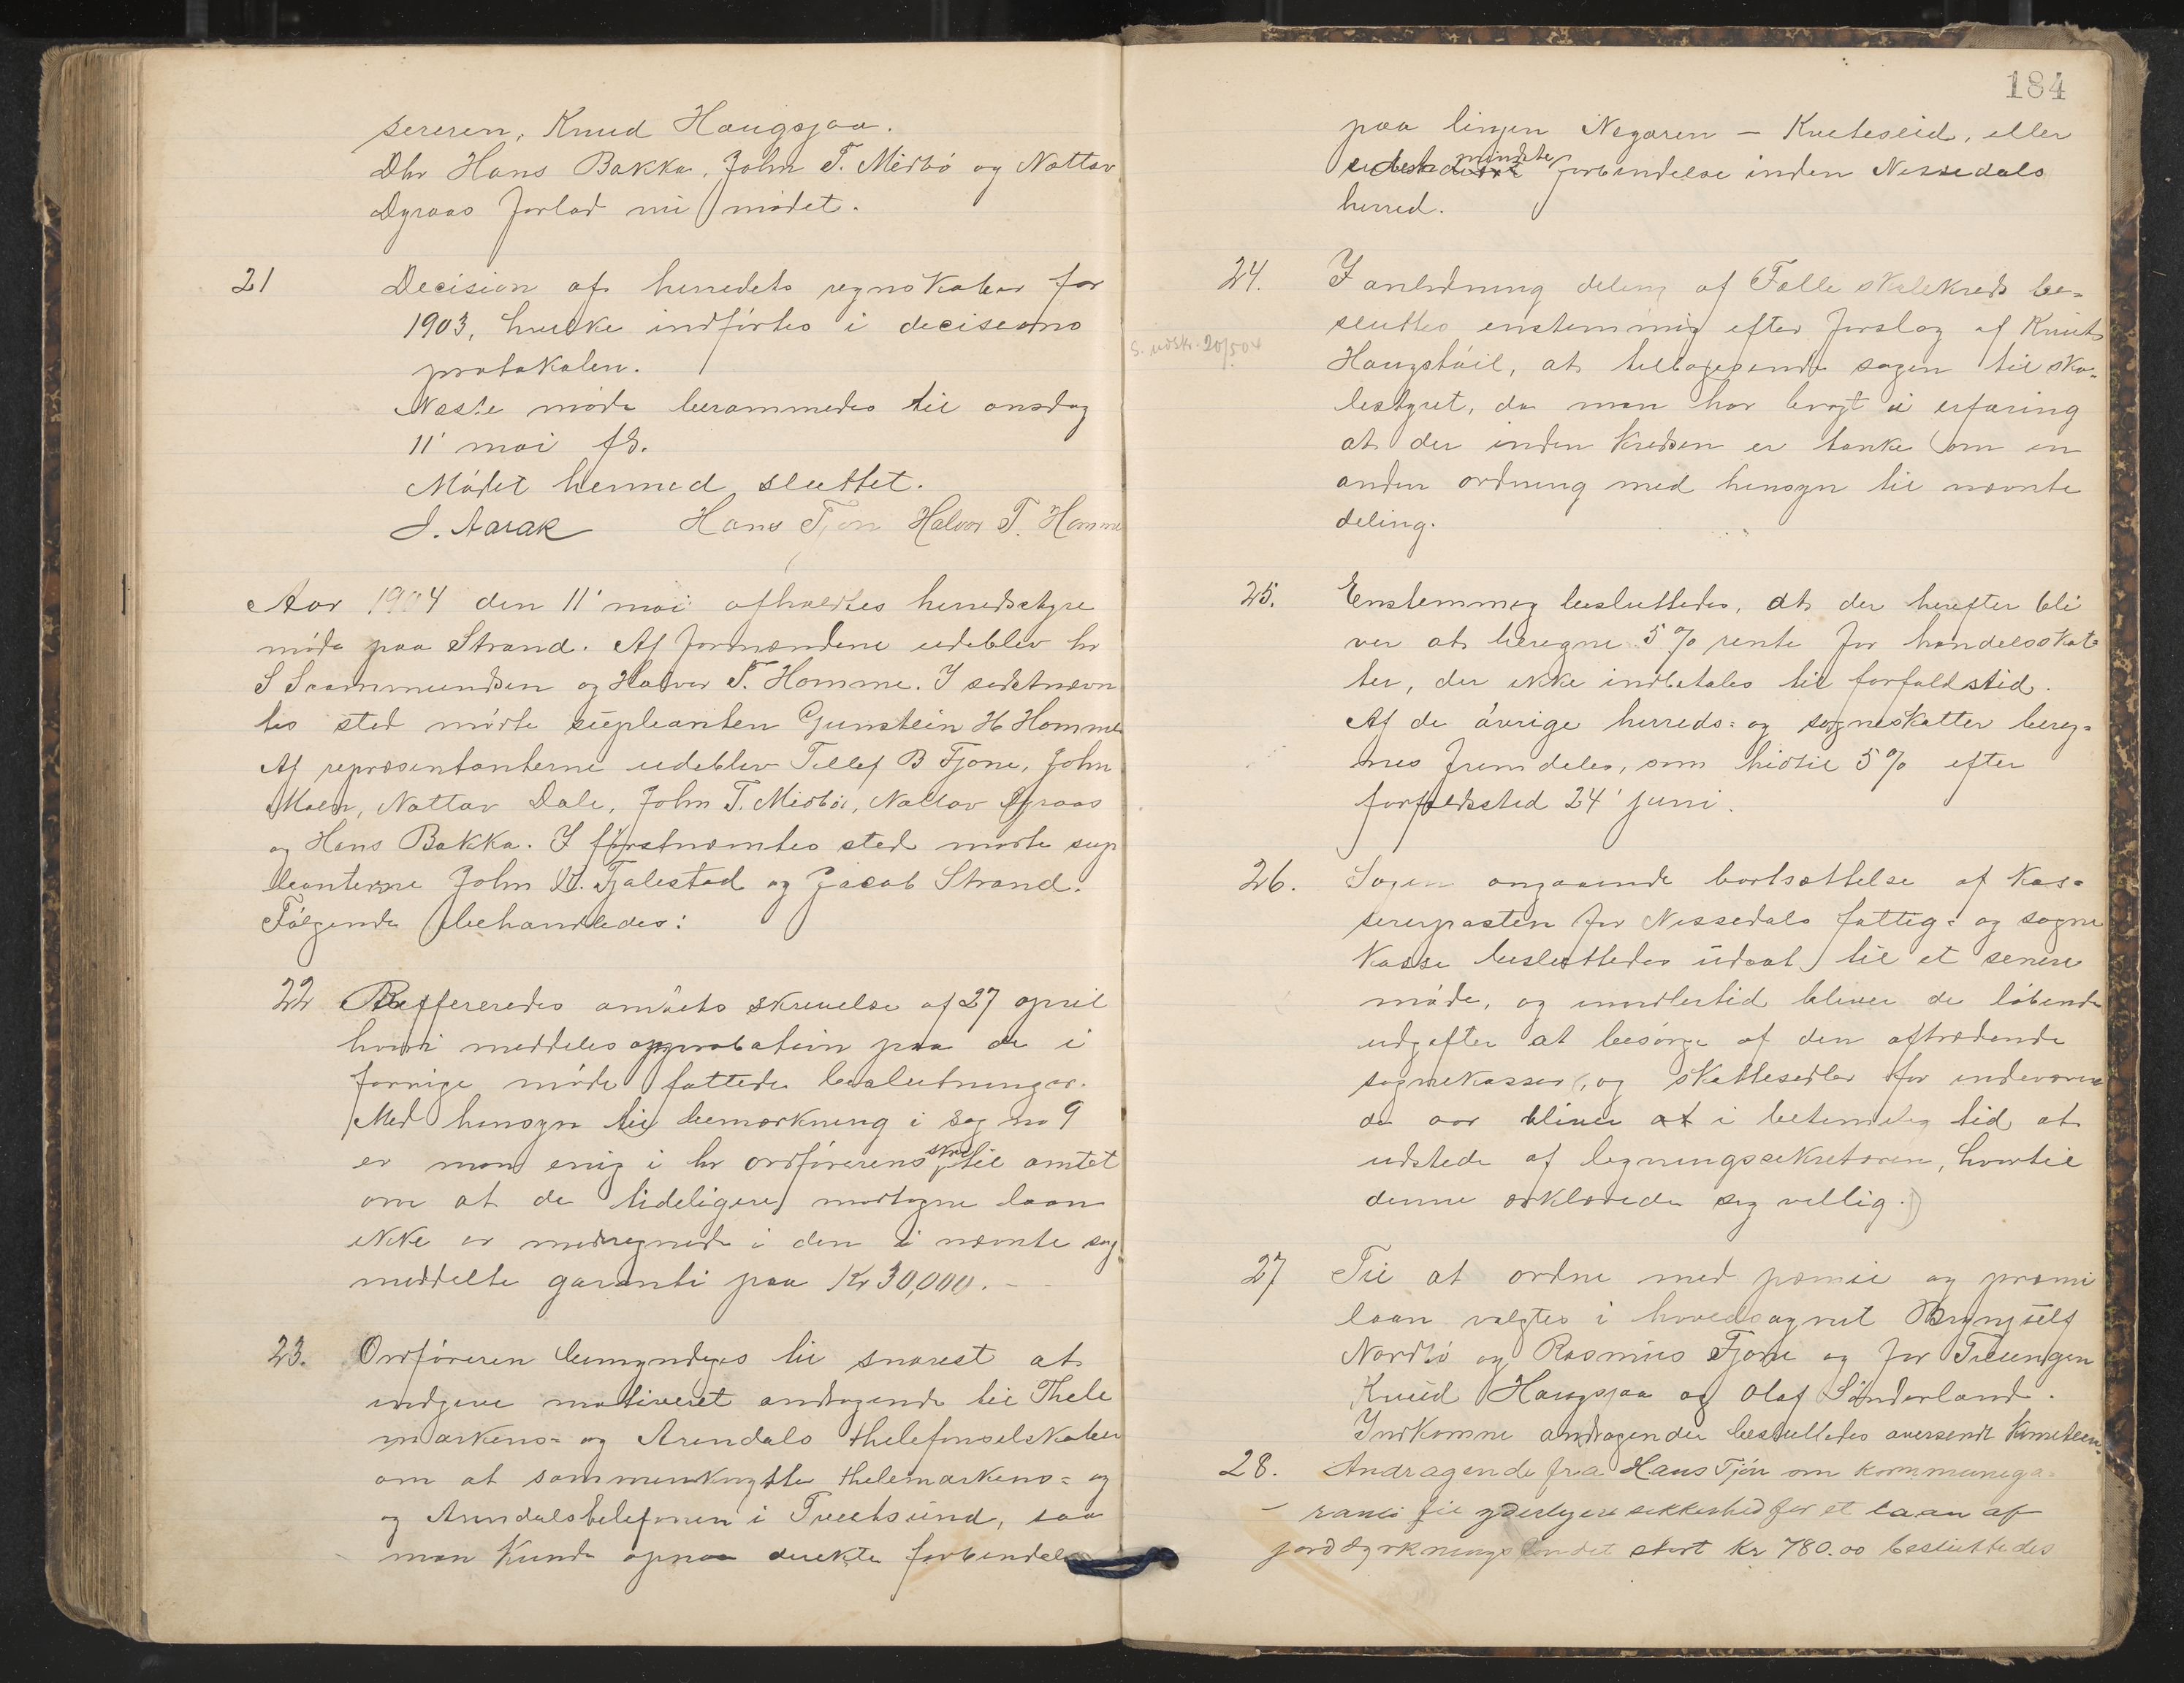 sereren, Knud Haugsjaa.
Dhr Hans Bakka, John T. Midbö og Nottov
Dyraas forlod nu mödet.
21 Decision af herredets regnskaber for
1903, hvilke indförtes i decisions
protokolen.
Næste möde berammedes til onsdag
11' mai ds.
Mödet hermed sluttet.
J. Aarak Hans Tjön Halvor T. Homme
Aar 1904 den 11' mai afholdtes herredsstyre
möde paa Strand. Af formændene udeblev hr
S Saammundsen og Halvor T. Homme. I sidstnævn
tes sted mödte supleanten Gunstein H Homme
Af repræsentanterne udeblev Tellef B Fjone, John
Moen, Nottov Dale, John T. Midbö, Nottov Dyraas
og Hans Bakka. I förstnævntes sted mödte sup
leanterne John H. Tjalestad og Jacob Strand.
Fölgende behandledes:
22 Reffereredes amtets skrivelse af 27 april
hvori meddeles approbation paa de i
forrige möde fattede beslutninger.
Med hensyn til bemærkning i sag no 9
er man enig i hr ordförerens skr til amtet
om at de tideligere modtagne laan
ikke er medregnede i den i nævnte sag
meddelte garanti paa Kr 30,000. -
23. Ordföreren bemyndiges til snarest at
indgive motiveret andragende til Thele
markens- og Arendals thelefonselskaber
om at sammenknytte thelemarkens- og
og Arendalstelefonen i Tveitsund, saa
man kunde opnaa direkte forbindelse
184
paa linjen Negaren - Kviteseid, eller
mindste forbindelse inden Nissedals
herred.
24. I anledning deling af Fælle skolekreds be-
sluttes enstemmig efter forslag af Knut
Haugstöil, at tilbagesende sagen til sko-
lestyret, da man har bragt i erfaring
at der inden kredsen er tanke om en
anden ordning med hensyn til nævnte
deling.
S. udskr. 20/5 04
25. Enstemmig besluttedes, at der herefter bli
ver at beregne 5 % rente for handelsskat-
ter, der ikke indbetales til forfaldstid.
Af de övrige herreds- og sogneskatter bereg-
nes fremdeles, som hidtil 5 % efter
forfaldstid 24' juni.
26. Sagen angaaende bortsættelse af kas-
sererposten for Nissedals fattig- og sogne
kasse besluttedes udsat til et senere
möde, og imidlertid bliver de löbende
udgifter at besörge af den aftrædende
sognekasser, og skattesedler for indeværen
de aar bliver at i betimelig tid at
udstede af ligningssekretæren, hvortil
denne erklærede sig villig.
27 Til at ordne med præmie og præmi
laan valgtes i hovedsagnet Brynjulf
Nordbö og Rasmus Fjone og for Treungen
Knud Haugsjaa og Olaf Sönderland.
Indkomne andragender besluttedes oversendt komiteen.
28. Andragende fra Hans Tjön om kommunega-
ranti for yderligere sikkerhed for et laan af
jorddyrkningsfondet stort kr 780.00 besluttedes